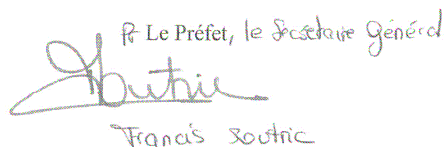 Pr Le Préfet, le Secrétaire Général
Francis Soutric